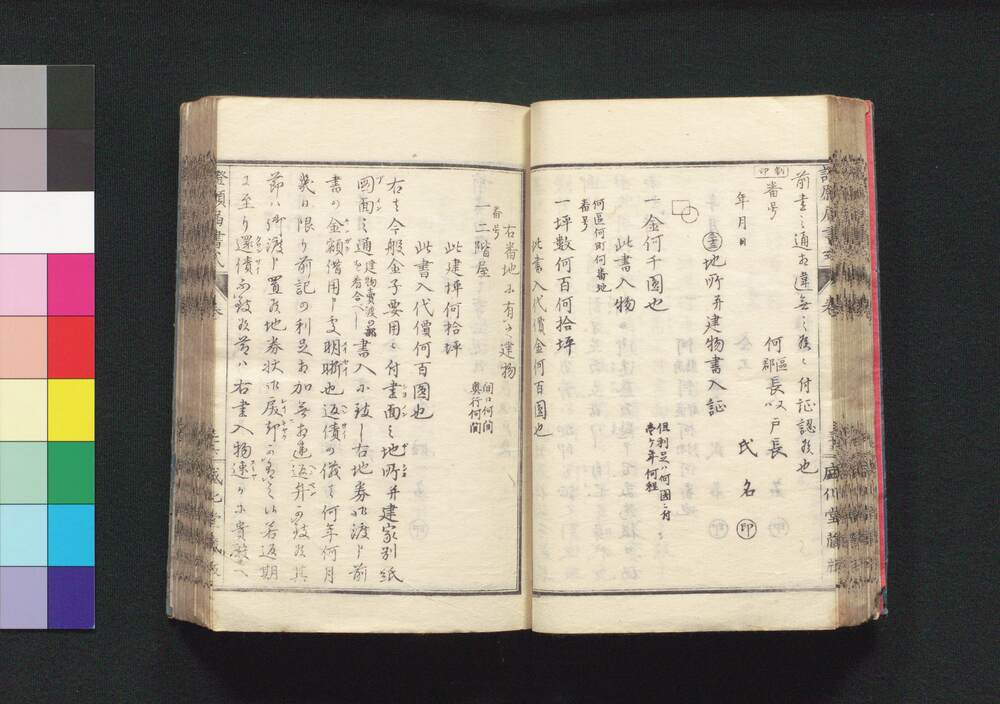 前書之通相違無之候ニ付証認致也
割印
番号
何區郡長又ハ戸長
年月日
氏名 印
地所并建物書入証
一金何千圓也
但利足ハ何圓ニ付
壱ヶ年何程
此書入物
何區何町何番地
番号
一坪數何百何拾坪
此書入代價金何百圓也
右番地ニ有之建物
番号
一二階屋
間口何間
奥行何間
此建坪何拾坪
此書入代價何百圓也
右者今般金子要用ニ付書面之地所并建家別紙
圖面之通
書入ニ致し右地券相渡し前
書の金額借用申處明晰也返債の儀者何年何月
幾日限り前記の利足相加無相違返弁可致候其
節ハ御渡し置候地券状御戻却
若返期
ニ至り還債不致候節ハ右書入物速かに貴殿へ
證願届書式
盛化堂蔵版